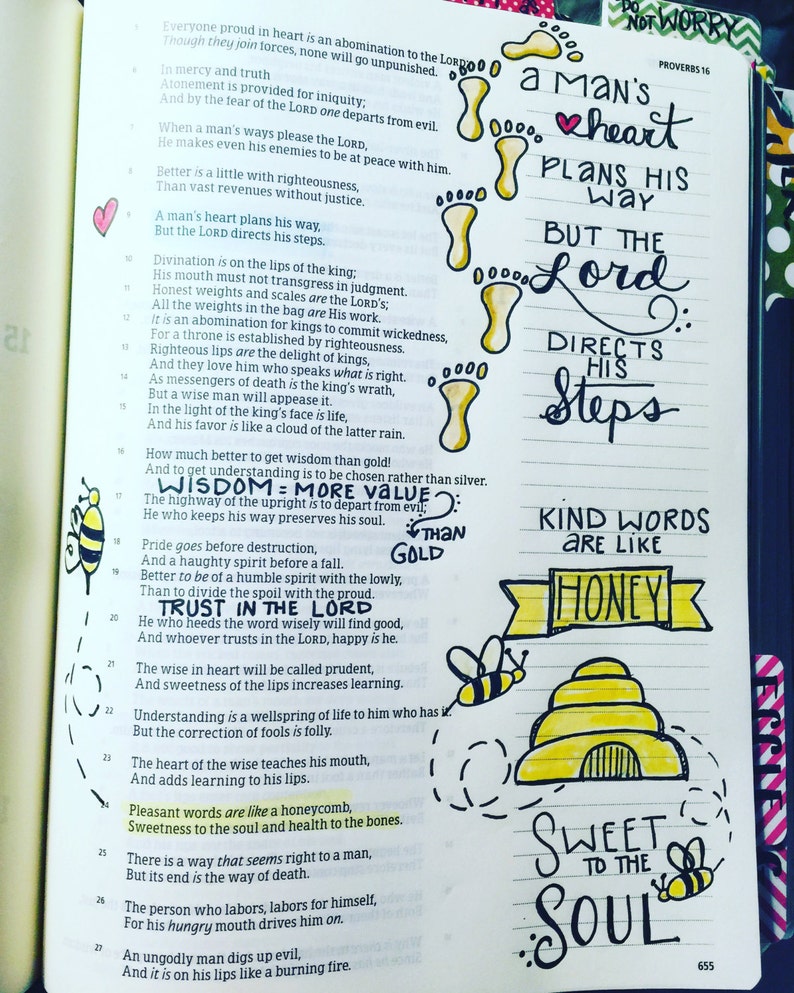 DO
NOT WORRY
PROVERBS 16
5 Everyone proud in heart is an abomination to the LORD;
Though they join forces, none will go unpunished.
6 In mercy and truth
Atonement is provided for iniquity;
And by the fear of the LORD one departs from evil.
7 When a man's ways please the LORD,
He makes even his enemies to be at peace with him.
8 Better is a little with righteousness,
Than vast revenues without justice.
9 A man's heart plans his way,
But the LORD directs his steps.
10 Divination is on the lips of the king;
His mouth must not transgress in judgment.
11 Honest weights and scales are the LORD's;
All the weights in the bag are His work.
12 It is an abomination for kings to commit wickedness,
For a throne is established by righteousness.
13 Righteous lips are the delight of kings,
And they love him who speaks what is right.
14 As messengers of death is the king's wrath,
But a wise man will appease it.
15 In the light of the king's face is life,
And his favor is like a cloud of the latter rain.
16 How much better to get wisdom than gold!
And to get understanding is to be chosen rather than silver.
WISDOM = MORE VALUE
THAN
GOLD
17 The highway of the upright is to depart from evil;
He who keeps his way preserves his soul.
18 Pride goes before destruction,
And a haughty spirit before a fall.
19 Better to be of a humble spirit with the lowly,
Than to divide the spoil with the proud.
TRUST IN THE LORD
20 He who heeds the word wisely will find good,
And whoever trusts in the LORD, happy is he.
21 The wise in heart will be called prudent,
And sweetness of the lips increases learning.
22 Understanding is a wellspring of life to him who has it.
But the correction of fools is folly.
23 The heart of the wise teaches his mouth,
And adds learning to his lips.
24 Pleasant words are like a honeycomb,
Sweetness to the soul and health to the bones.
25 There is a way that seems right to a man,
But its end is the way of death.
26 The person who labors, labors for himself,
For his hungry mouth drives him on.
27 An ungodly man digs up evil,
And it is on his lips like a burning fire.
a MAN'S
heart
PLANS HIS
WAY
BUT THE
Lord
DIRECTS
HIS
Steps
KIND WORDS
aRE LIKE
HONEY
SWEET
TO THE
SOUL
655
15